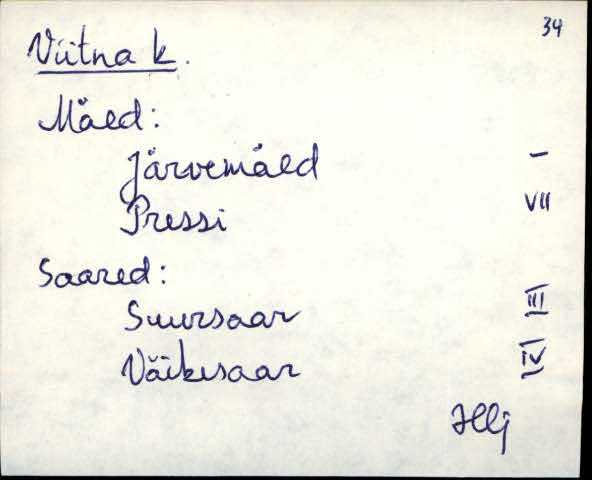 34
Viitna k.
Mäed:
Järvemäed –
Pressi VII
Saared:
Suursaar III
Väikesaar IV
Hlj